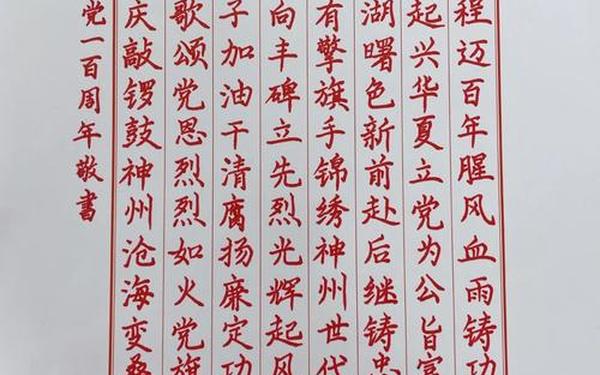 程迈百年腥风血雨铸功
起兴华夏立党为公旨富
湖曙色新前赴后继铸忠
有擎旗手锦绣神州世代
向丰碑立先烈光辉起风
子加油干清腐扬廉定功
歌颂党恩烈烈如火党旗
庆敲锣鼓神州沧海变桑
党一百周年敬书